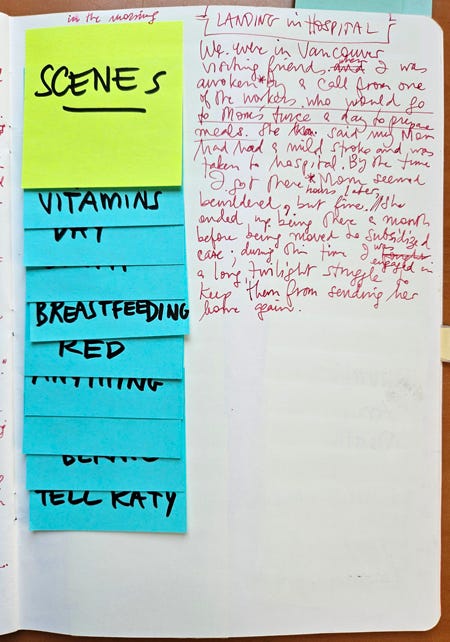 in the morning
SCENES
VITAMINS
DAY
BREASTFEEDING
RED
ANYTHING
TELL KATY
{LANDING in HOSPITAL}
We were in Vancouver
visiting friends when I was
awoken* by a call from one
of the workers who would go
to Mom's twice a day to prepare
meals. She said my Mom
had had a mild stroke and was
taken to hospital. By the time
I got there* Mom seemed
hours later,
bewildered, but fine. // She
ended up being there a month
before being moved to subsidized
care; during this time I was
engaged in
a long twilight struggle to
keep them from sending her
home again.